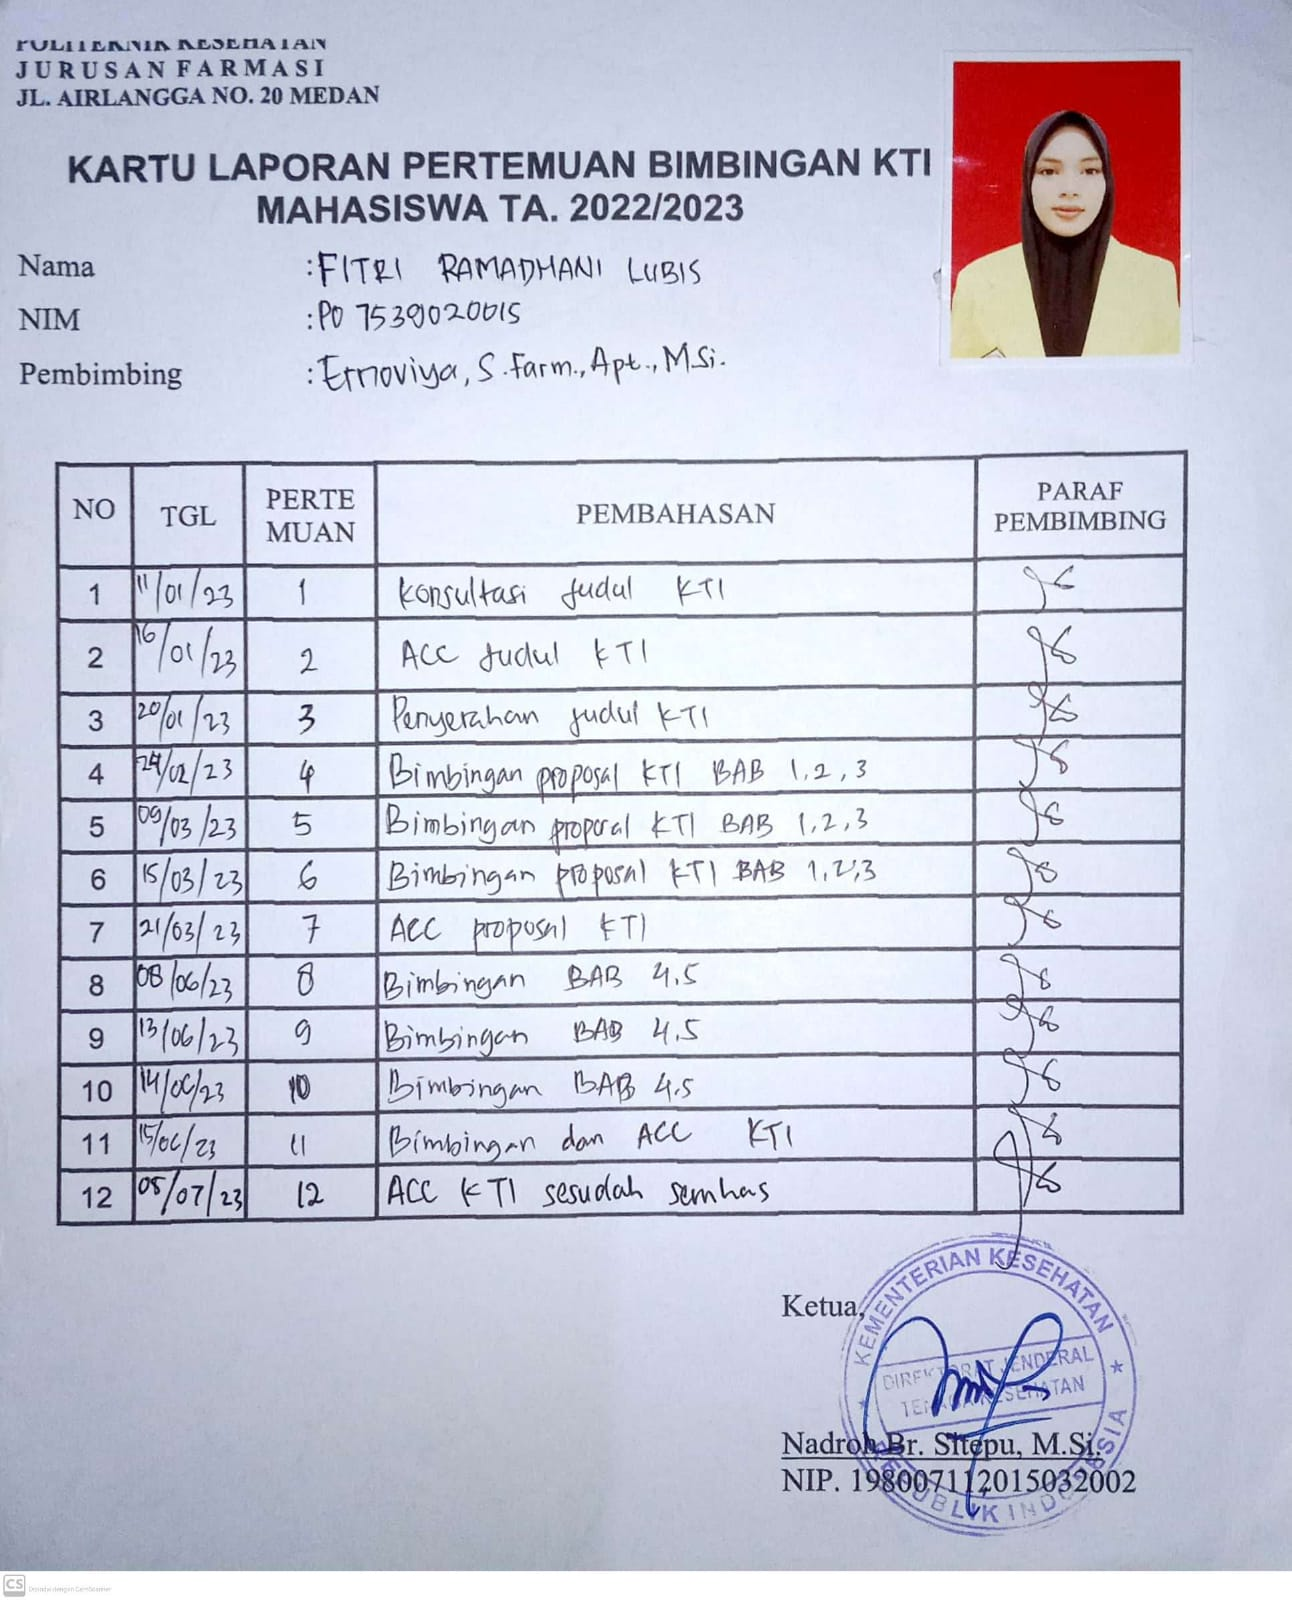 POLITEKNIK KESEHATAN
JURUSAN FARMASI
JL. AIRLANGGA NO. 20 MEDAN
KARTU LAPORAN PERTEMUAN BIMBINGAN KTI
MAHASISWA TA. 2022/2023
Nama : FITRI RAMADHANI LUBIS
NIM : PO 7539020015
Pembimbing : Ernoviya, S.Farm., Apt., M.Si.
NO TGL PERTE MUAN PEMBAHASAN PARAF PEMBIMBING
1 11/01/23 1 Konsultasi Judul KTI
2 16/01/23 2 ACC Judul KTI
3 20/01/23 3 Penyerahan Judul KTI
4 24/02/23 4 Bimbingan proposal KTI BAB 1,2,3
5 09/03/23 5 Bimbingan proporal KTI BAB 1,2,3
6 15/03/23 6 Bimbingan proposal KTI BAB 1,2,3
7 21/03/23 7 ACC proposal KTI
8 08/06/23 8 Bimbingan BAB 4.5
9 13/06/23 9 Bimbingan BAB 4.5
10 14/06/23 10 Bimbingan BAB 4.5
11 15/06/23 11 Bimbingan dan ACC KTI
12 05/07/23 12 ACC KTI sesudah semhas
Ketua,
KEMENTERIAN KESEHATAN
DIREKTORAT JENDERAL
TENAGA KESEHATAN
REPUBLIK INDONESIA
Nadroh Br. Sitepu, M.Si.
NIP. 198007112015032002
CS Dipindai dengan CamScanner